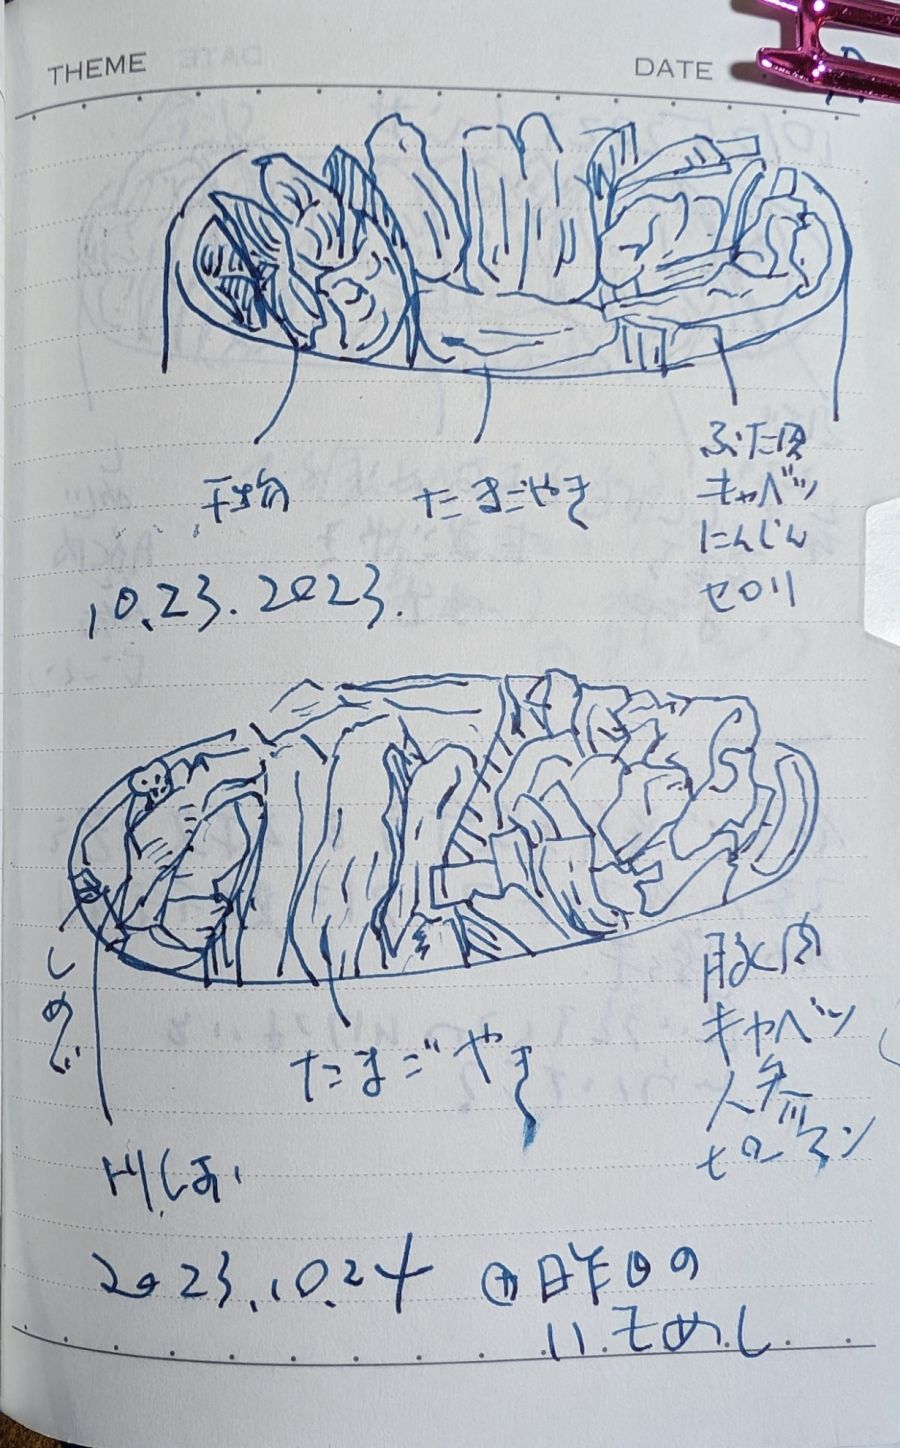 THEME
DATE
干物
たまごやき
ぶた肉
キャベツ
にんじん
セロリ
10.23.2023.
しめじ
たまごやき
豚肉
キャベツ
人参
ピーマン
トリしお
2023.10.24
昨日の
いもめし